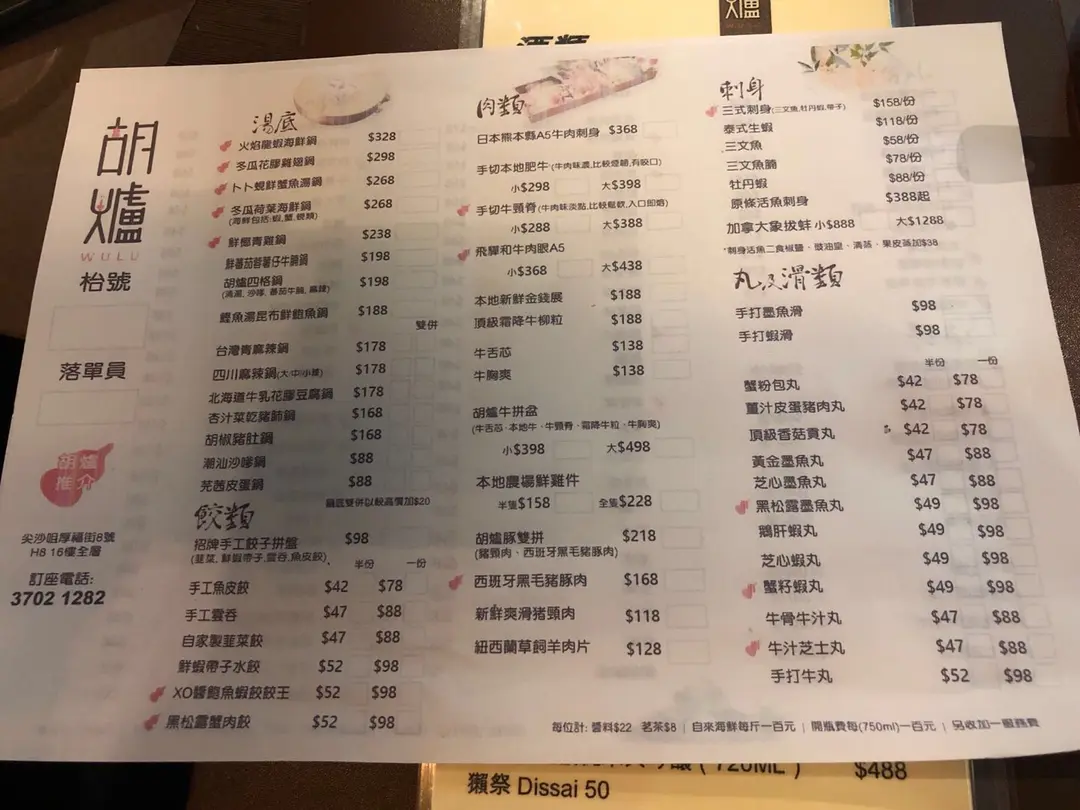 酒類
爐
胡爐
WULU
枱號
落單員
胡爐
推介
尖沙咀厚福街8號
H8 16樓全層
訂座電話:
3702 1282
湯底
火焰龍蝦海鮮鍋 $328
冬瓜花膠雞翅鍋 $298
卜卜蜆鮮蟹魚湯鍋 $268
冬瓜荷葉海鮮鍋 $268
(海鮮包括:蝦,蟹,蜆類)
鮮椰青雞鍋 $238
鮮蕃茄薯仔牛腩鍋 $198
胡爐四格鍋 $198
(清湯, 沙嗲, 蕃茄牛腩, 麻辣)
鰹魚湯昆布鮮鮑魚鍋 $188
雙併
台灣青麻辣鍋 $178
四川麻辣鍋(大/中/小辣) $178
北海道牛乳花膠豆腐鍋 $178
杏汁菜乾豬肺鍋 $168
胡椒豬肚鍋 $168
潮汕沙嗲鍋 $88
芫茜皮蛋鍋 $88
鍋底雙併以較高價加$20
餃類
招牌手工餃子拼盤 $98
(韮菜, 鮮蝦帶子,雲吞,魚皮餃)
半份 一份
手工魚皮餃 $42 $78
手工雲吞 $47 $88
自家製韮菜餃 $47 $88
鮮蝦帶子水餃 $52 $98
XO醬鮑魚蝦餃餃王 $52 $98
黑松露蟹肉餃 $52 $98
肉類
日本熊本縣A5牛肉刺身 $368
手切本地肥牛(牛肉味濃,比較煙韌,有咬口)
小$298 大$398
手切牛頸脊(牛肉味淡點,比較鬆軟,入口即溶)
小$288 大$388
飛驒和牛肉眼A5
小$368 大$438
本地新鮮金錢展 $188
頂級霜降牛柳粒 $188
牛舌芯 $138
牛胸爽 $138
胡爐牛拼盆
(牛舌芯·本地牛·牛頸脊·霜降牛粒·牛胸爽)
小$398 大$498
本地農場鮮雞件
半隻$158 全隻$228
胡爐豚雙拼 $218
(豬頸肉、西班牙黑毛豬豚肉)
西班牙黑毛豬豚肉 $168
新鮮爽滑猪頸肉 $118
紐西蘭草飼羊肉片 $128
刺身
三式刺身(三文魚,牡丹蝦,帶子) $158/份
泰式生蝦 $118/份
三文魚 $58/份
三文魚腩 $78/份
牡丹蝦 $88/份
原條活魚刺身 $388起
加拿大象拔蚌 小$888 大$1288
*刺身活魚二食椒鹽、豉油皇、清蒸、果皮蒸加$38
丸及滑類
手打墨魚滑 $98
手打蝦滑 $98
半份 一份
蟹粉包丸 $42 $78
薑汁皮蛋豬肉丸 $42 $78
頂級香菇貢丸 $42 $78
黃金墨魚丸 $47 $88
芝心墨魚丸 $47 $88
黑松露墨魚丸 $49 $98
鵝肝蝦丸 $49 $98
芝心蝦丸 $49 $98
蟹籽蝦丸 $49 $98
牛骨牛汁丸 $47 $88
牛汁芝士丸 $47 $88
手打牛丸 $52 $98
每位計: 醬料$22 茗茶$8 | 自來海鮮每斤一百元 | 開瓶費每(750ml)一百元 | 另收加一服務費
(720ML)
$488
獺祭 Dissai 50